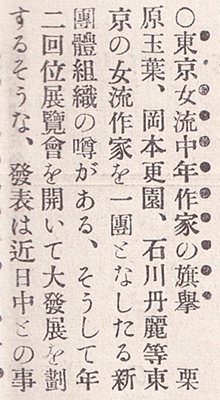 〇東京女流中年作家の旗擧　栗
原玉葉、岡本更園、石川丹麗等東
京の女流作家を一團となしたる新
團體組織の噂がある、そうして年
二回位展覽會を開いて大發展を劃
するそうな、發表は近日中との事